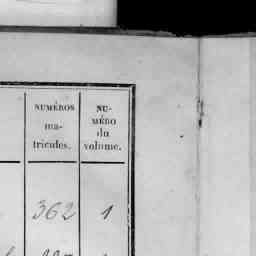 NUMÉROS
ma-
tricules.
NU-
MÉRO
du
volume.
362 1